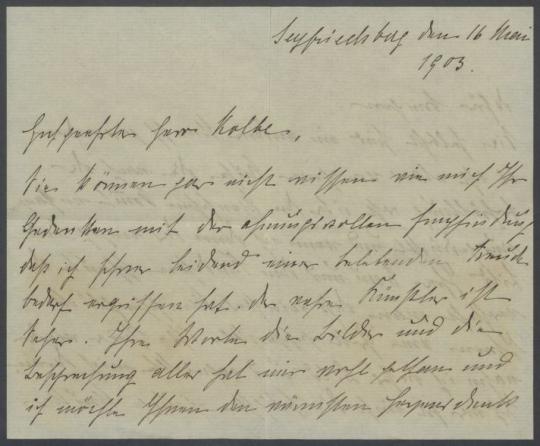 Seyfriedsberg den 16 Mai
1903.
Hochgeehrter Herr Kolbe,
Sie können gar nicht wissen wie mich Ihr
Gedenken mit der ahnungsvollen Empfindung
daß ich schwer leidend einer belebenden Freude
bedarf ergriffen hat. der wahre Künstler ist
Seher. Ihre Worte die Bilder und die
Besprechung aller hat mir wohl gethan und
ich möchte Ihnen den wärmsten Herzensdank